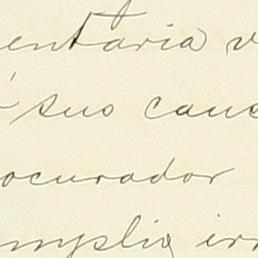 entaria v
suo caus
ocurador
mplia irr